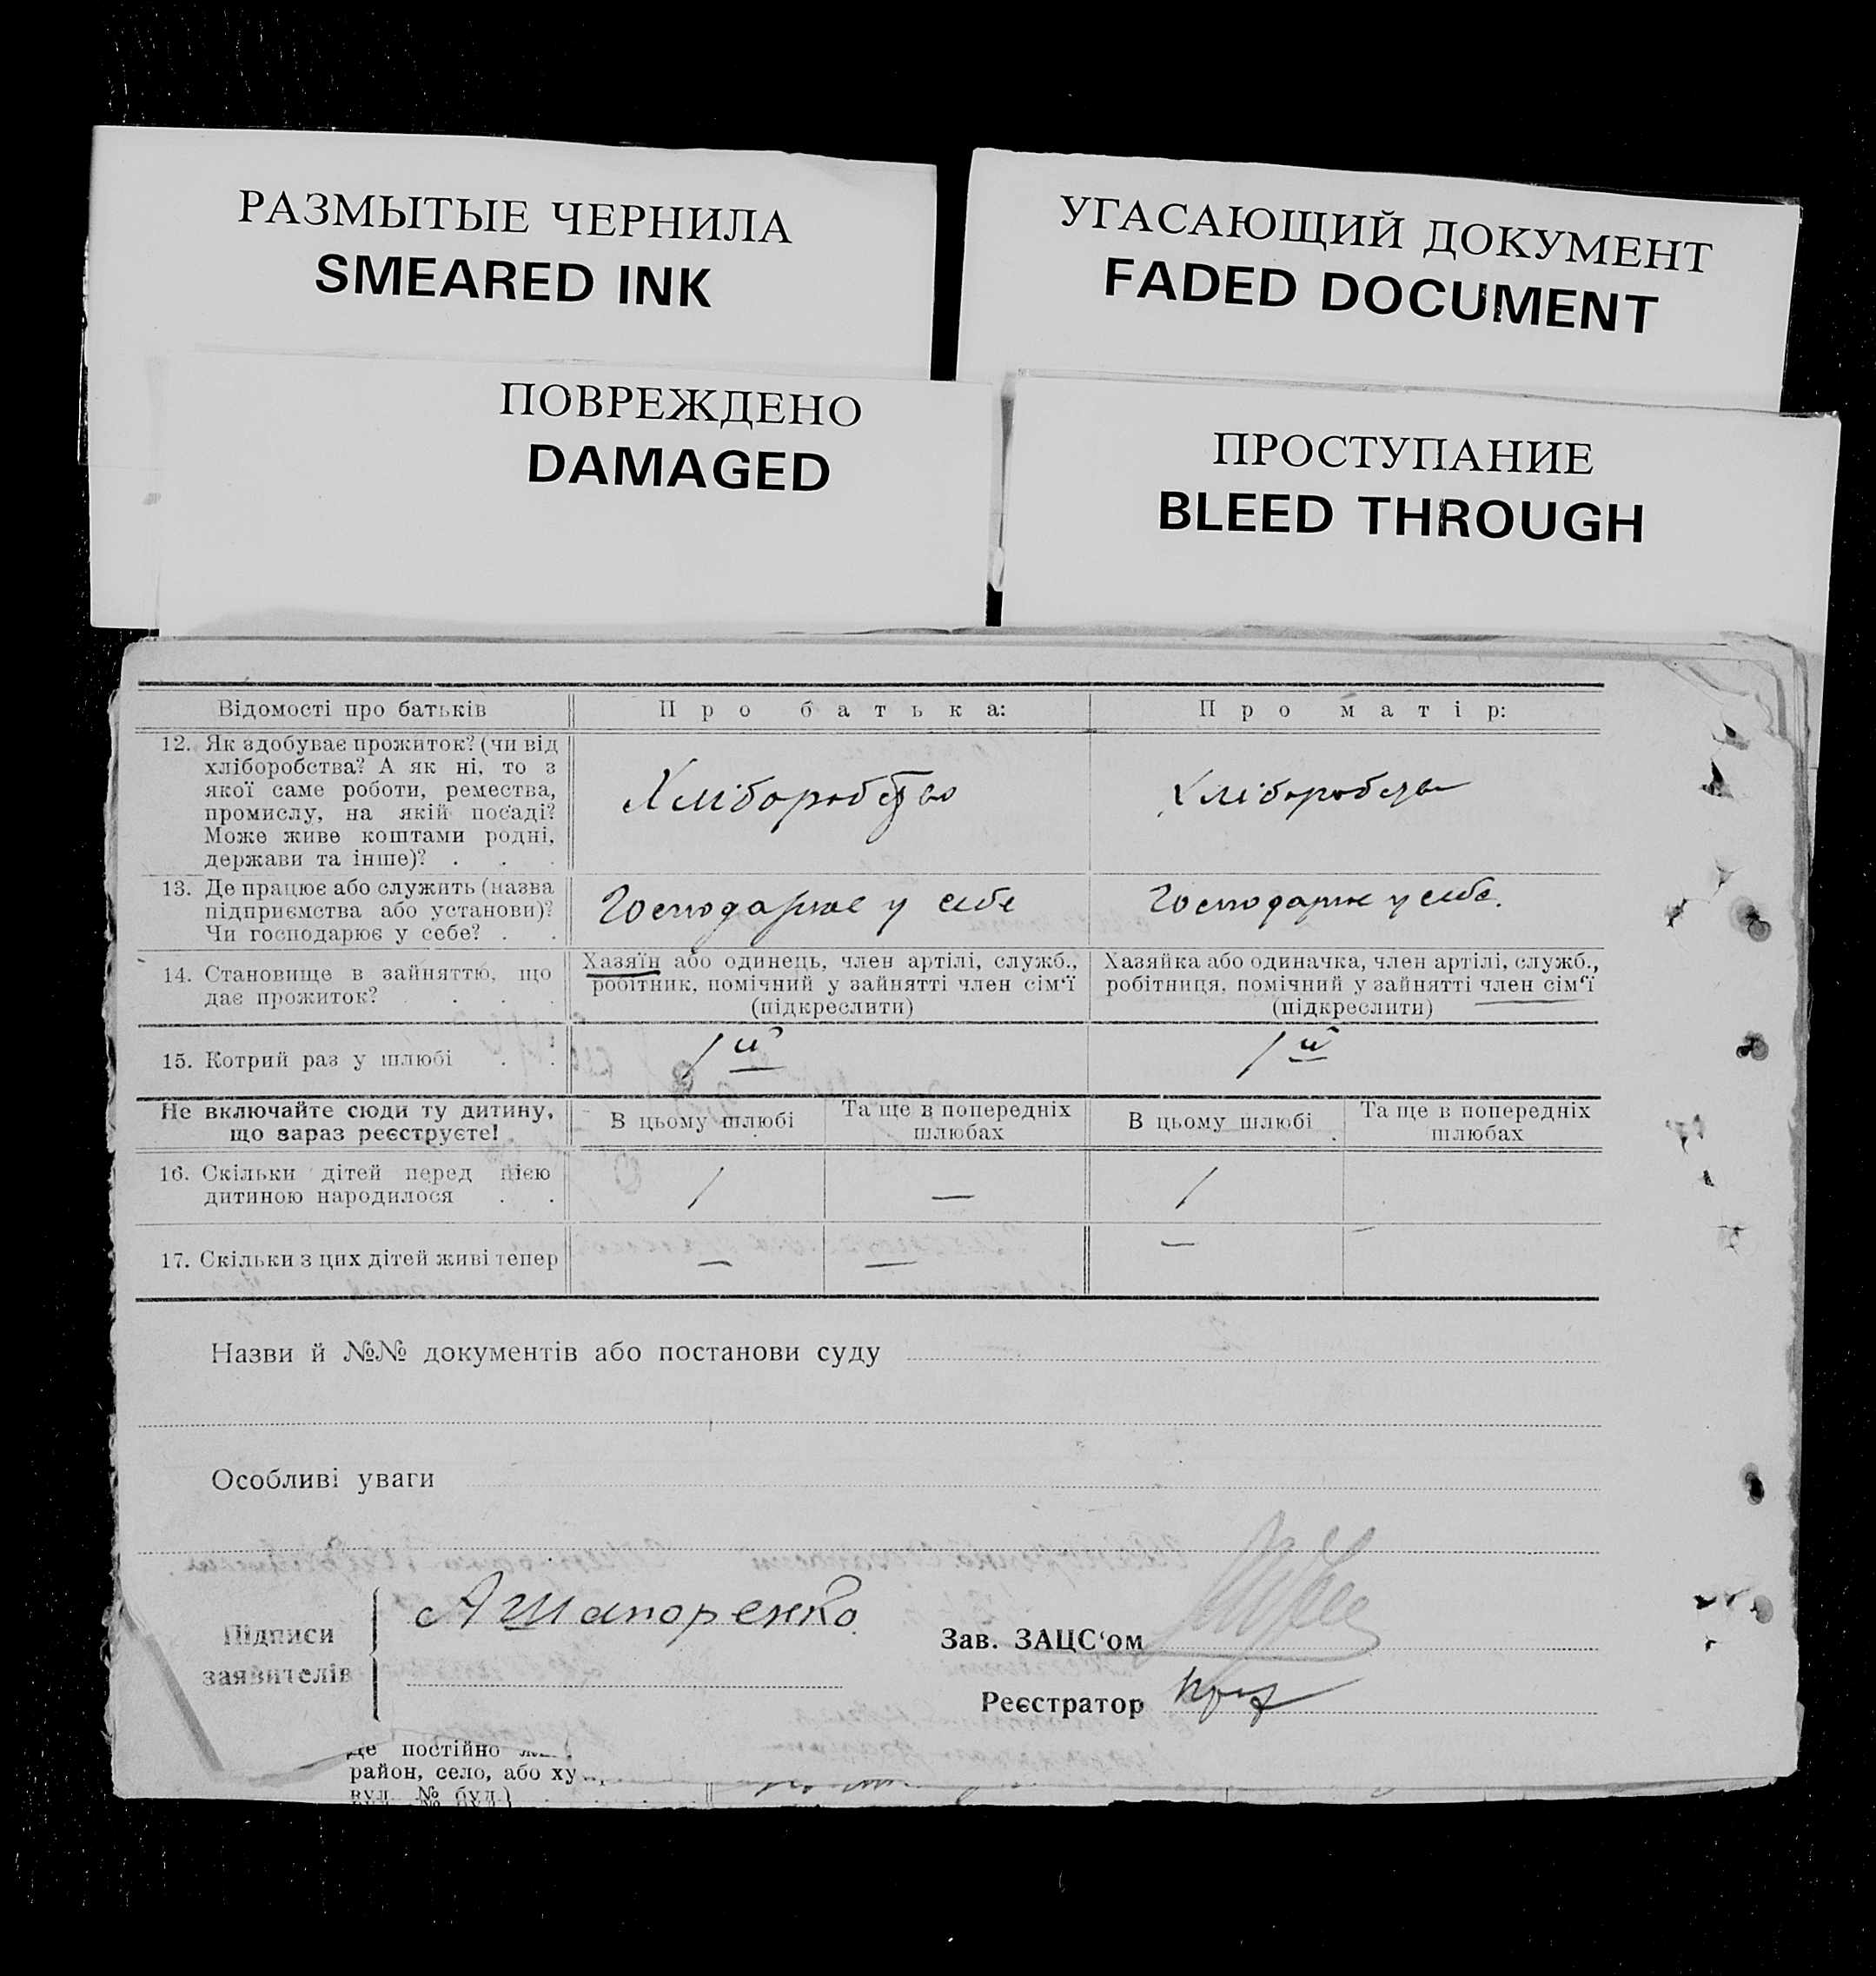 РАЗМЫТЫЕ ЧЕРНИЛА
SMEARED INK
УГАСАЮЩИЙ ДОКУМЕНТ
FADED DOCUMENT
ПОВРЕЖДЕНО
DAMAGED
ПРОСТУПАНИЕ
BLEED THROUGH
Відомості про батьків
Про батька:
Про матір:
12. Як здобуває прожиток? (чи від
хліборобства? А як ні, то з
якої саме роботи, ремества,
промислу, на якій посаді?
Може живе коштами родні,
держави та інше)? . . .
Хліборобство
Хліборобство
13. Де працює або служить (назва
підприємства або установи)?
Чи господарює у себе? . .
Господарює у себе
Господарює у себе.
14. Становище в зайняттю, що
дає прожиток? . . .
Хазяїн або одинець, член артілі, служб.,
робітник, помічний у зайнятті член сім‘ї
(підкреслити)
Хазяйка або одиначка, член артілі, служб.,
робітниця, помічний у зайнятті член сім‘ї
(підкреслити)
15. Котрий раз у шлюбі . .
1й
1й
Не включайте сюди ту дитину,
що зараз реєструєте!
В цьому шлюбі
Та ще в попередніх
шлюбах
В цьому шлюбі
Та ще в попередніх
шлюбах
16. Скільки дітей перед цією
дитиною народилося . .
1
—
1
17. Скільки з цих дітей живі тепер
—
—
—
—
Назви й №№ документів або постанови суду
Особливі уваги
Підписи
заявителів
А Шапоренко
Зав. ЗАЦС‘ом
Реєстратор
постійно
район, село, або ху
вул. № буд.)